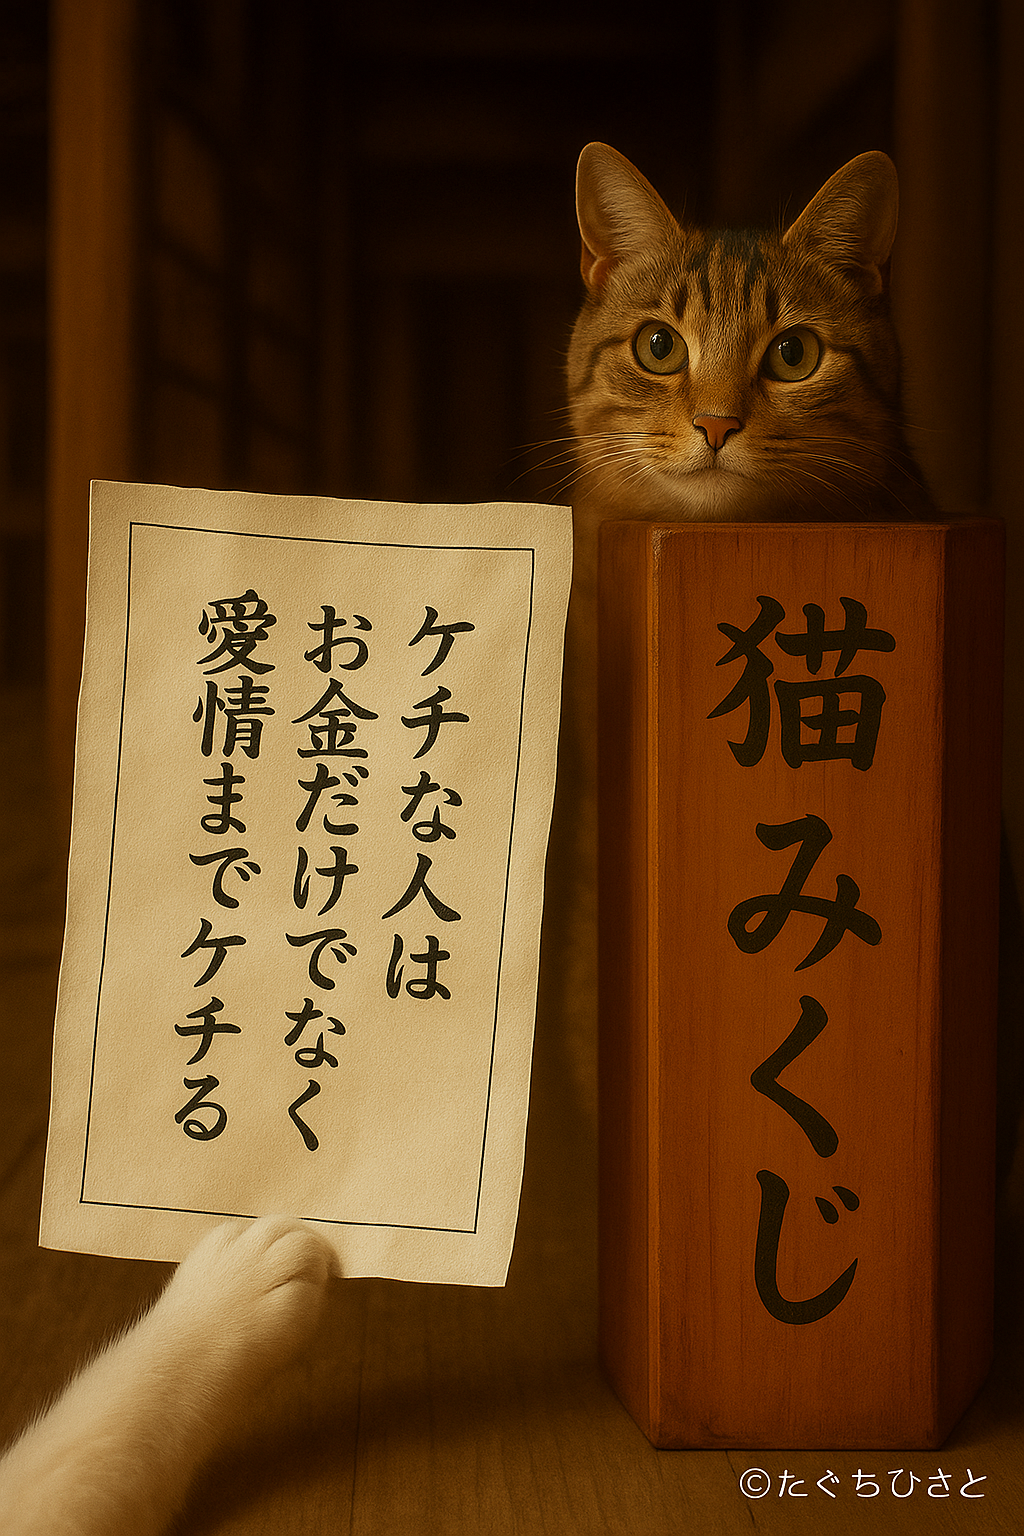 ケチな人は
お金だけでなく
愛情までケチる
猫みくじ
©たぐちひさと